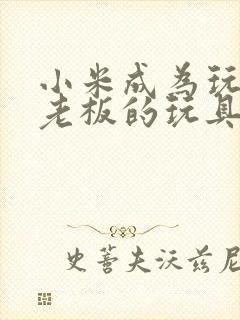 小米成为玩
老板的玩具
史蒂夫沃兹尼